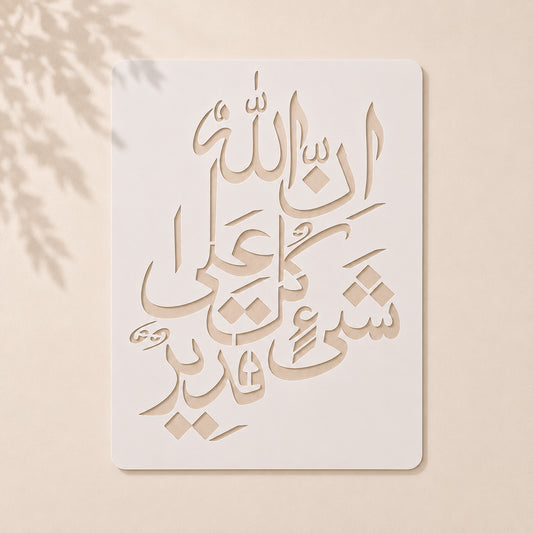 اِنَّ اللّٰهَ
عَلٰى كُلِّ
شَىْءٍ
قَدِيْرٌ